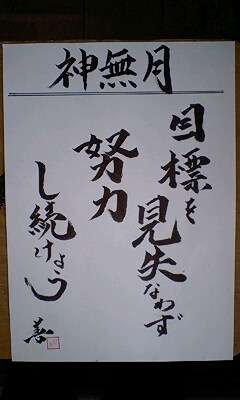 神無月
目標を
見失なわず
努力
し続けよう
善